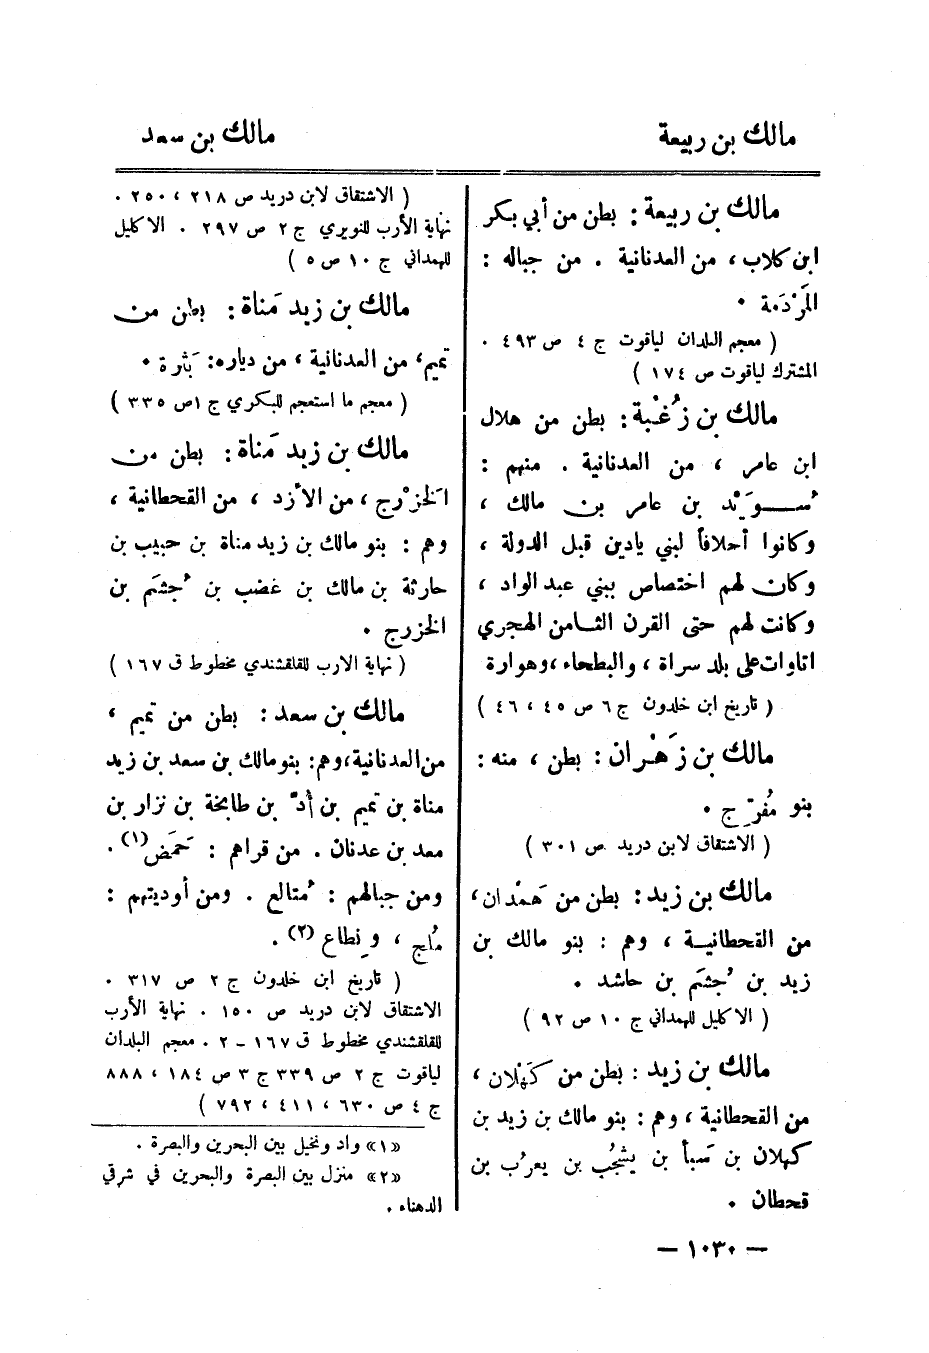 مالك بن ربيعة
مالك بن سعد
مالك بن ربيعة : بطن من أبي بكر
ابن كلاب ، من العدنانية . من جباله :
المَرْدَمة .
( معجم البلدان لياقوت ج ٤ ص ٤٩٣ .
المشترك لياقوت ص ١٧٤ )
مالك بن زُغْبة : بطن من هلال
ابن عامر ، من العدنانية . منهم :
سُوَيْد بن عامر بن مالك ،
وكانوا أحلافاً لبني يادين قبل الدولة ،
وكان لهم اختصاص ببني عبد الواد ،
وكانت لهم حتى القرن الثامن الهجري
اتاوات على بلد سراة ، والبطحاء ، وهوارة
( تاريخ ابن خلدون ج ٦ ص ٤٥ ، ٤٦ )
مالك بن زَهْران : بطن ، منه :
بنو مُفرّج .
( الاشتقاق لابن دريد ص ٣٠١ )
مالك بن زيد : بطن من هَمْدان ،
من القحطانية ، وهم : بنو مالك بن
زيد بن جُشَم بن حاشد .
( الاكليل للهمداني ج ١٠ ص ٩٢ )
مالك بن زيد : بطن من كَهْلان ،
من القحطانية ، وهم : بنو مالك بن زيد بن
كهلان بن سَبأ بن يشجُب بن يعرُب بن
قحطان .
( الاشتقاق لابن دريد ص ٢١٨ ، ٢٥٠ .
نهاية الأرب للنويري ج ٢ ص ٢٩٧ . الاكليل
للهمداني ج ١٠ ص ٥ )
مالك بن زيد مَناة : بطن من
تميم ، من العدنانية ، من دياره : بَثْرة .
( معجم ما استعجم للبكري ج ١ ص ٣٣٥ )
مالك بن زيد مَناة : بطن من
الخَزْرج ، من الأزد ، من القحطانية ،
وهم : بنو مالك بن زيد مناة بن حبيب بن
حارثة بن مالك بن غضب بن جُشَم بن
الخزرج .
( نهاية الارب للقلقشندي مخطوط ق ١٦٧ )
مالك بن سعد : بطن من تميم ،
من العدنانية ، وهم : بنو مالك بن سعد بن زيد
مناة بن تميم بن أُدّ بن طابخة بن نزار بن
معد بن عدنان . من قراهم : حَمَض (١) .
ومن جبالهم : مُتالع . ومن أوديتهم :
مُلج ، ونِطاع (٢) .
( تاريخ ابن خلدون ج ٢ ص ٣١٧ .
الاشتقاق لابن دريد ص ١٥٠ . نهاية الأرب
للقلقشندي مخطوط ق ١٦٧ - ٢ . معجم البلدان
لياقوت ج ٢ ص ٣٣٩ ج ٣ ص ١٨٤ ، ٨٨٨
ج ٤ ص ٦٣٠ ، ٤١١ ، ٧٩٢ )
«١» واد ونخيل بين البحرين والبصرة .
«٢» منزل بين البصرة والبحرين في شرقي
الدهناء .
— ١٠٣٠ —